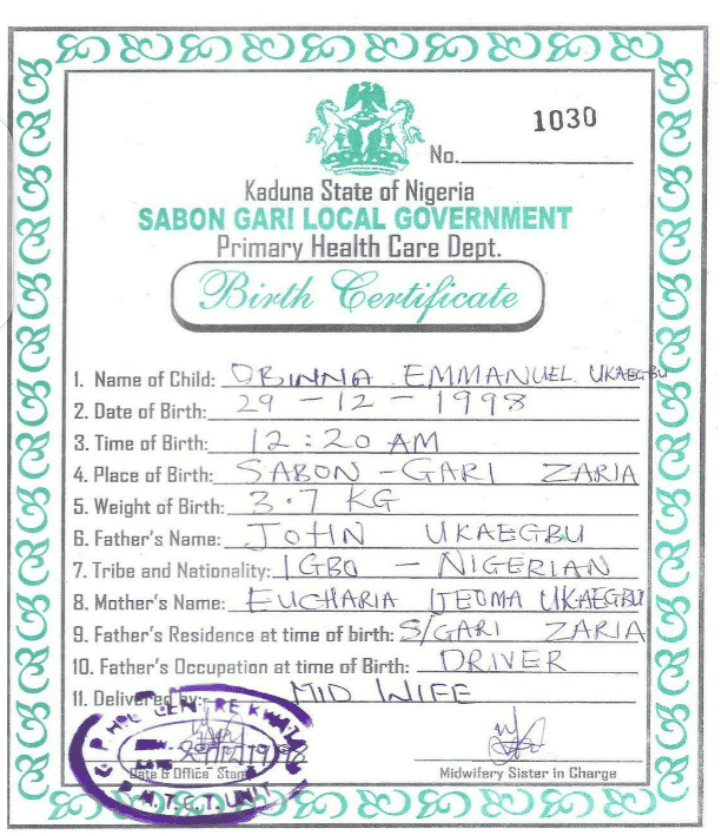 1030
No.
Kaduna State of Nigeria
SABON GARI LOCAL GOVERNMENT
Primary Health Care Dept.
Birth Certificate
1. Name of Child: OBINNA EMMANUEL UKAEGBU
2. Date of Birth: 29 - 12 - 1998
3. Time of Birth: 12:20 AM
4. Place of Birth: SABON - GARI ZARIA
5. Weight of Birth: 3.7 KG
6. Father's Name: JOHN UKAEGBU
7. Tribe and Nationality: IGBO - NIGERIAN
8. Mother's Name: EUCHARIA IJEOMA UKAEGBU
9. Father's Residence at time of birth: S/GARI ZARIA
10. Father's Occupation at time of Birth: DRIVER
11. Delivered by: MID WIFE
CENTRE
Date & Office Stamp
Midwifery Sister in Charge
P.M.T.C.T. UNIT